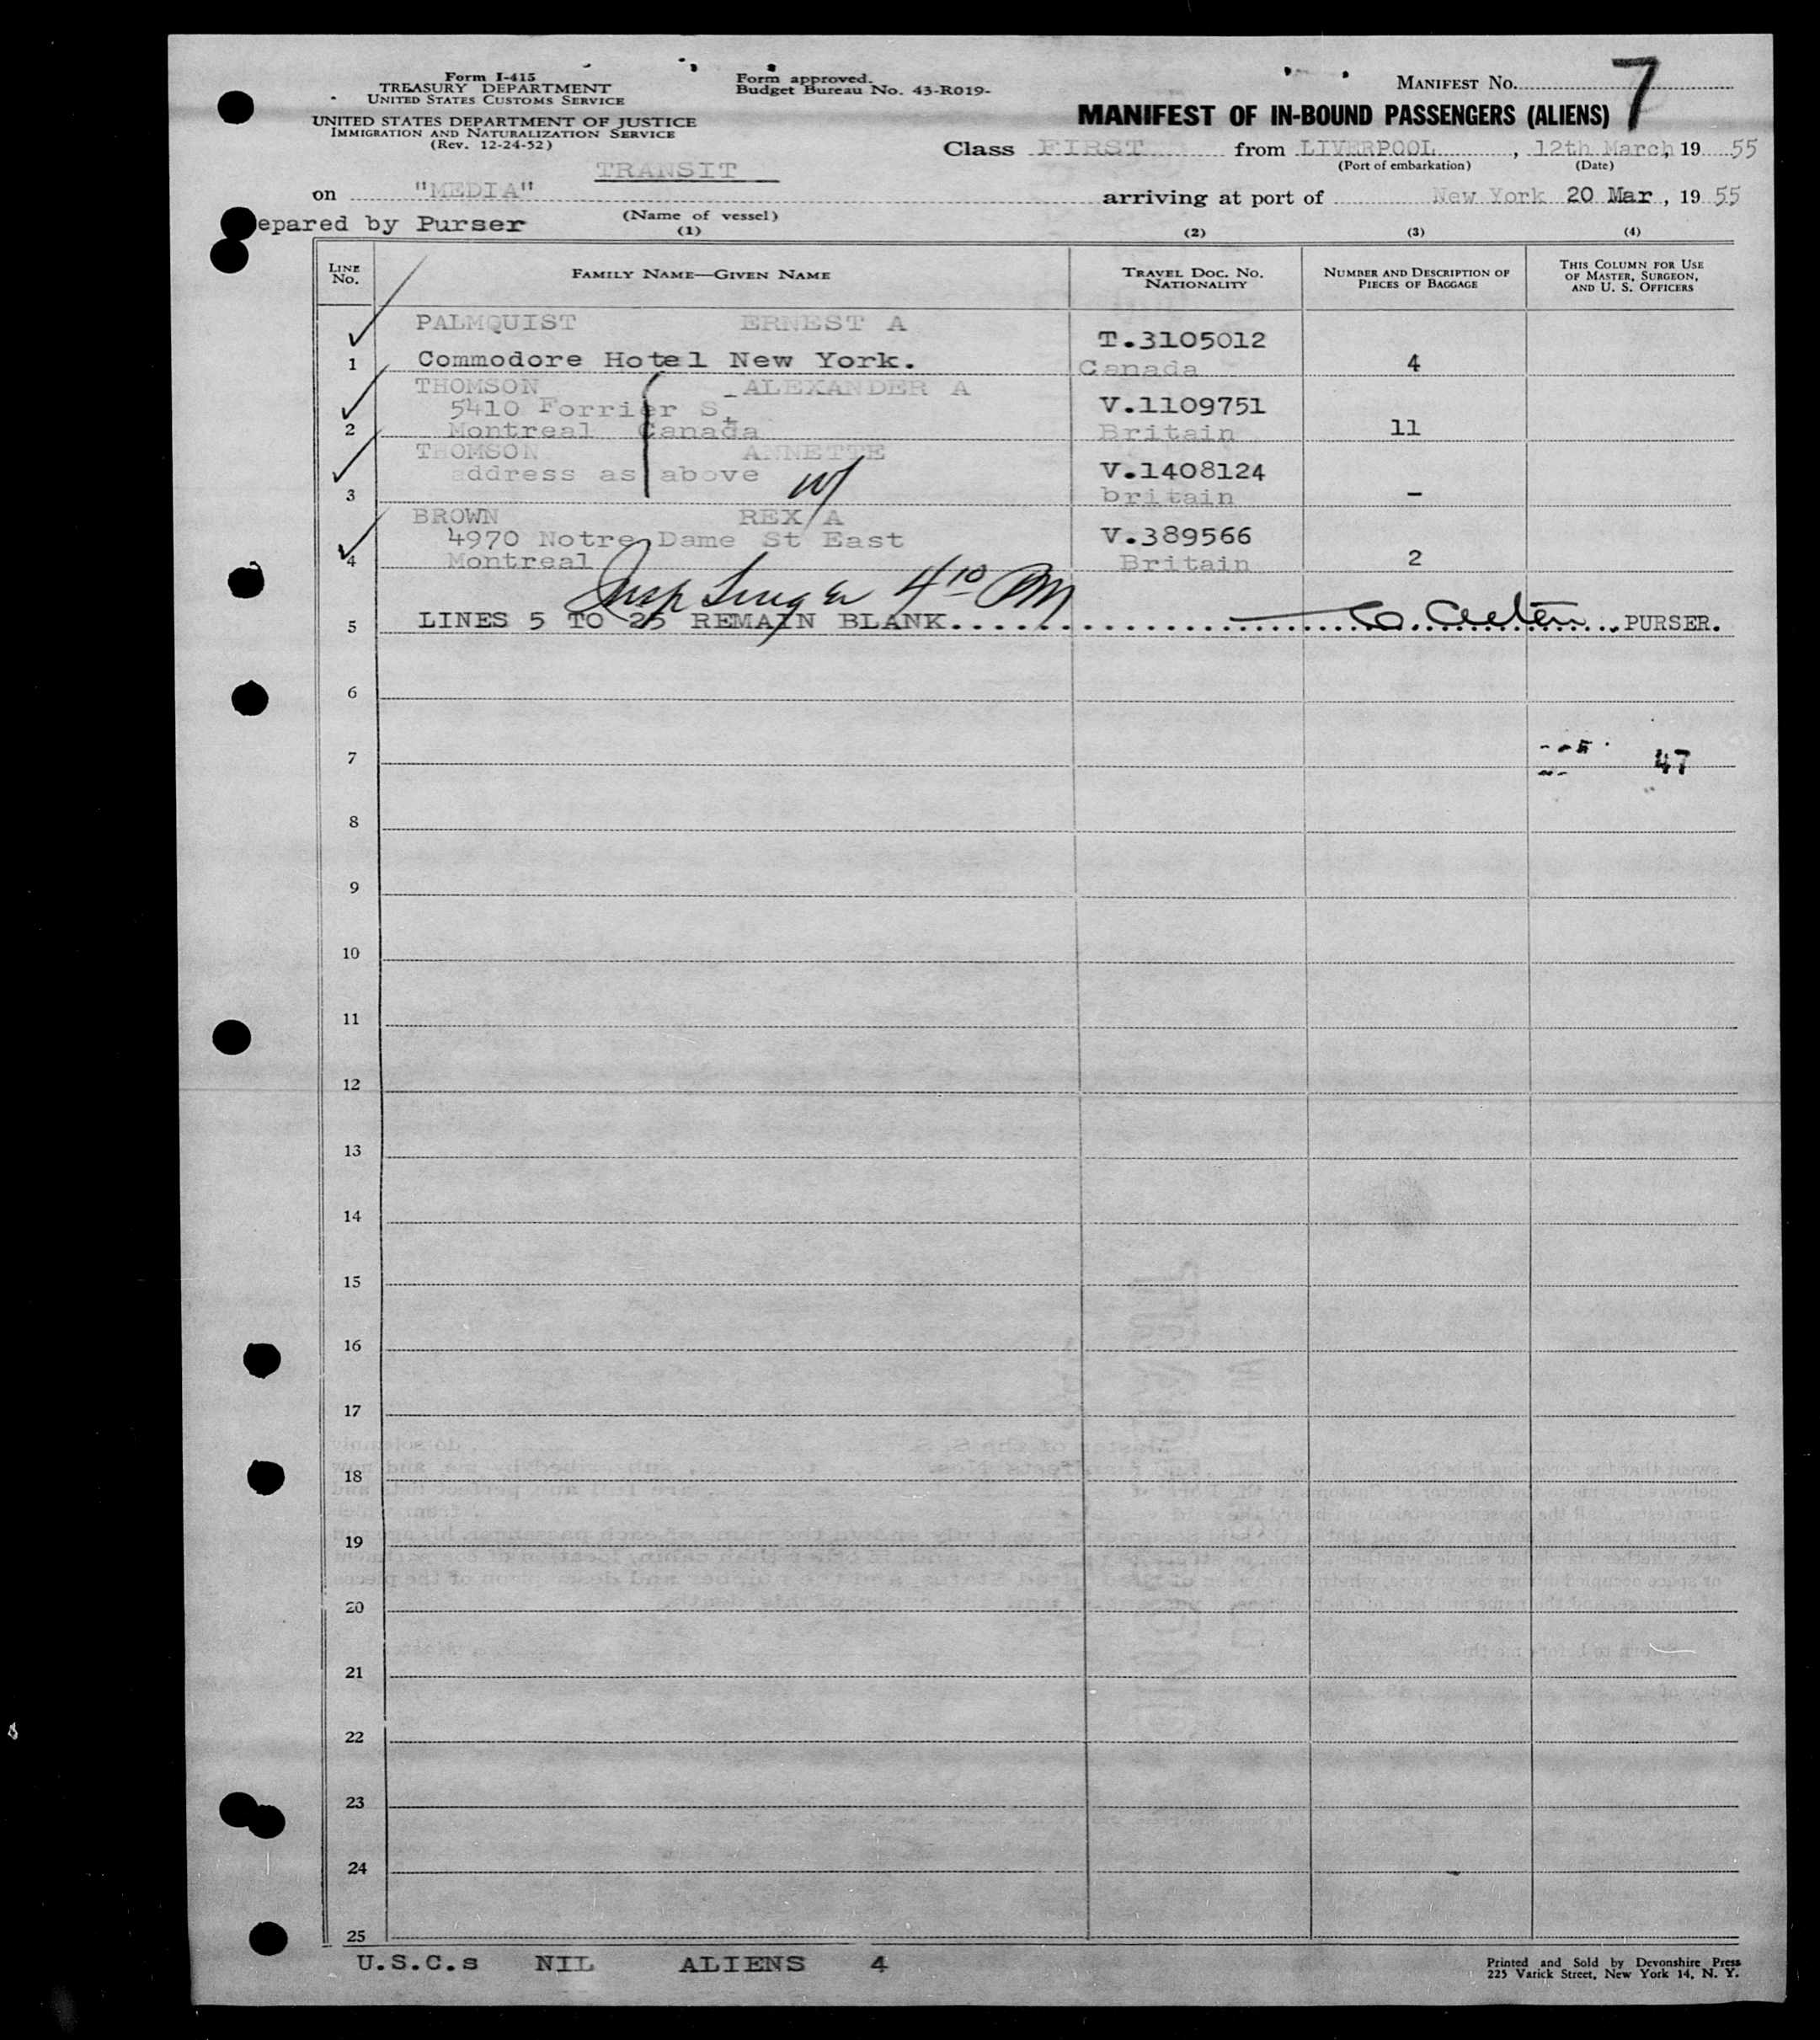 Form I-415
TREASURY DEPARTMENT
UNITED STATES CUSTOMS SERVICE
UNITED STATES DEPARTMENT OF JUSTICE
IMMIGRATION AND NATURALIZATION SERVICE
(Rev. 12-24-52)
Form approved.
Budget Bureau No. 43-R019-
MANIFEST No. 7
MANIFEST OF IN-BOUND PASSENGERS (ALIENS)
Class FIRST from LIVERPOOL, 12th March, 19 55
(Port of embarkation) (Date)
TRANSIT
on "MEDIA" arriving at port of New York 20 Mar, 19 55
epared by Purser (Name of vessel)
(1) (2) (3) (4)
LINE No. FAMILY NAME—GIVEN NAME TRAVEL DOC. NO. NATIONALITY NUMBER AND DESCRIPTION OF PIECES OF BAGGAGE THIS COLUMN FOR USE OF MASTER, SURGEON, AND U. S. OFFICERS
PALMQUIST ERNEST A T.3105012
1 Commodore Hotel New York. Canada 4
THOMSON ALEXANDER A
5410 Forrier St V.1109751
2 Montreal Canada Britain 11
THOMSON ANNETTE
address as above V.1408124
3 britain -
BROWN REX A
4970 Notre Dame St East V.389566
4 Montreal Britain 2
Insp 4 10 PM
5 LINES 5 TO 25 REMAIN BLANK. PURSER.
6
7 47
8
9
10
11
12
13
14
15
16
17
18
19
20
21
22
23
24
25
U.S.C.s NIL ALIENS 4
Printed and Sold by Devonshire Press
225 Varick Street, New York 14, N. Y.